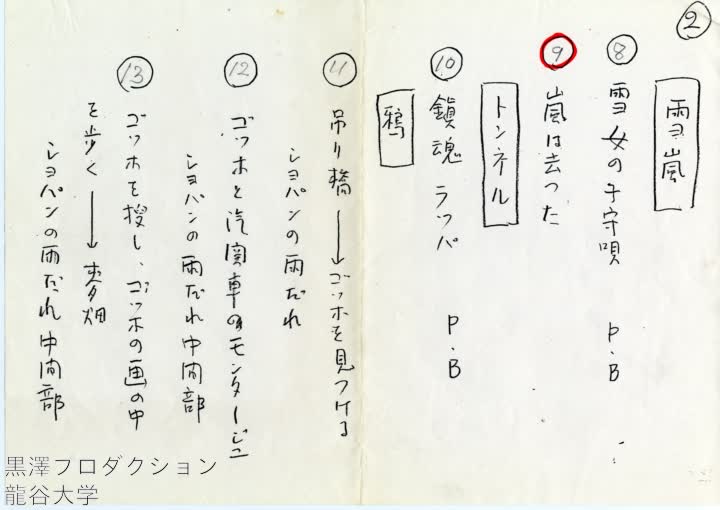 ②
雪嵐
⑧ 雪女の子守唄 P.B
⑨ 嵐は去った
トンネル
⑩ 鎮魂ラッパ P.B
鴉
⑪ 吊り橋→ゴッホを見つける
ショパンの雨だれ
⑫ ゴッホと汽関車のモンタージュ
ショパンの雨だれ中間部
⑬ ゴッホを捜し、ゴッホの画の中
を歩く→麦畑
ショパンの雨だれ中間部
黒澤プロダクション
龍谷大学